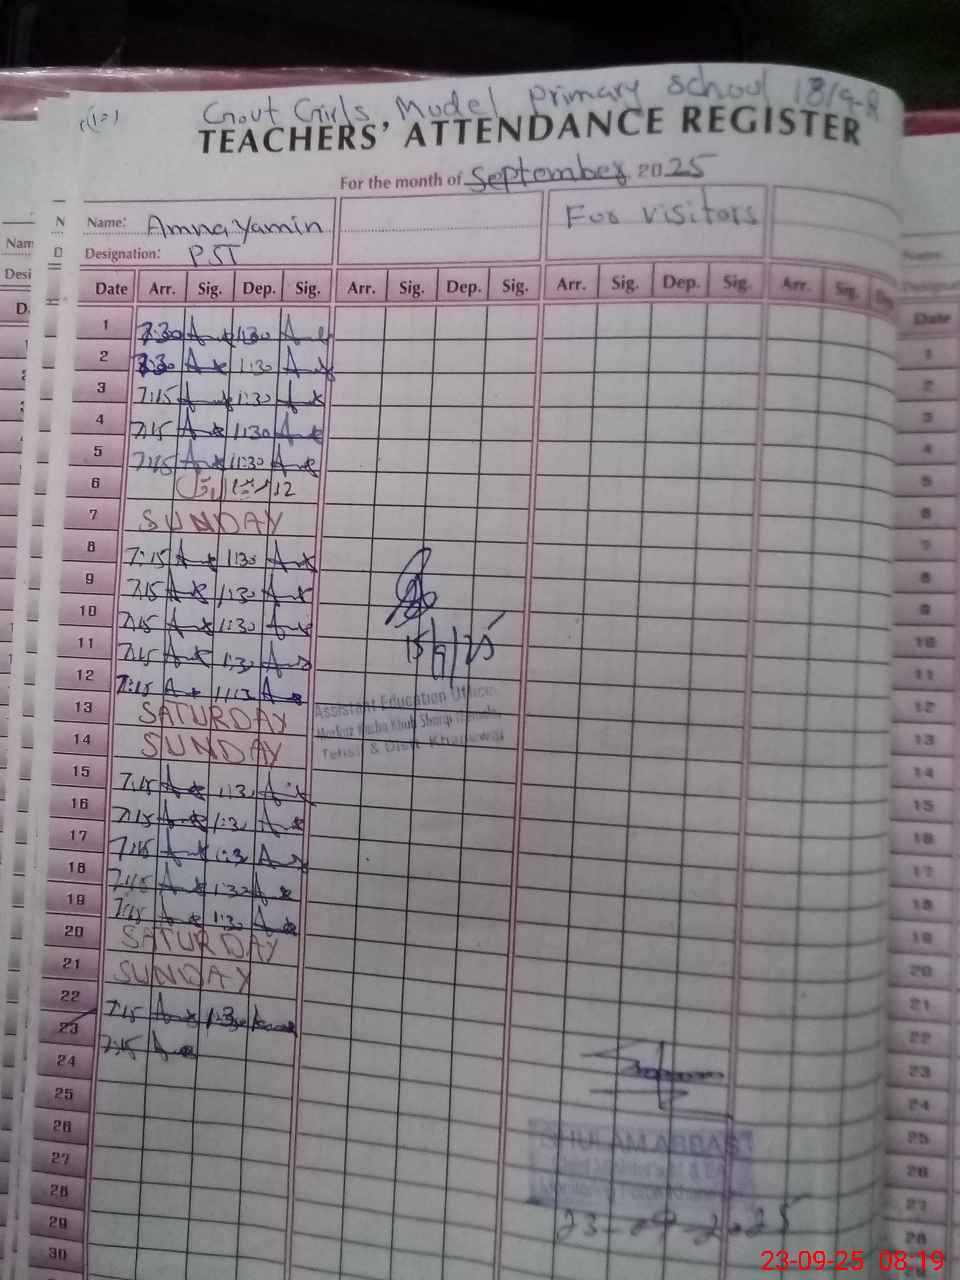 Govt Girls, Model Primary School 18/9-R
TEACHERS' ATTENDANCE REGISTER
For the month of September 2025
Name: Amna Yamin
For visitors
Designation: PST
Date Arr. Sig. Dep. Sig. Arr. Sig. Dep. Sig. Arr. Sig. Dep. Sig. Arr. Sig.
1 7:30 1:30
2 7:30 1:30
3 7:15 1:30
4 7:15 1:30
5 7:15 1:30
6 12 ربیع الاول
7 SUNDAY
8 7:15 1:30
9 7:15 1:30
10 7:15 1:30
11 7:15 1:30
12 7:15
15/9/25
13 SATURDAY
Assistant Education Officer
14 SUNDAY
Tehsil & Distt. Khanewal
15 7:15 1:30
16 7:15 1:30
17 7:15 1:30
18 7:15 1:30
19 7:15 1:30
20 SATURDAY
21 SUNDAY
22 7:15 1:30
23 7:15
24
25
26
27
28
29
30
GHULAM ABBAS
23-09-2025
23-09-25 08:19